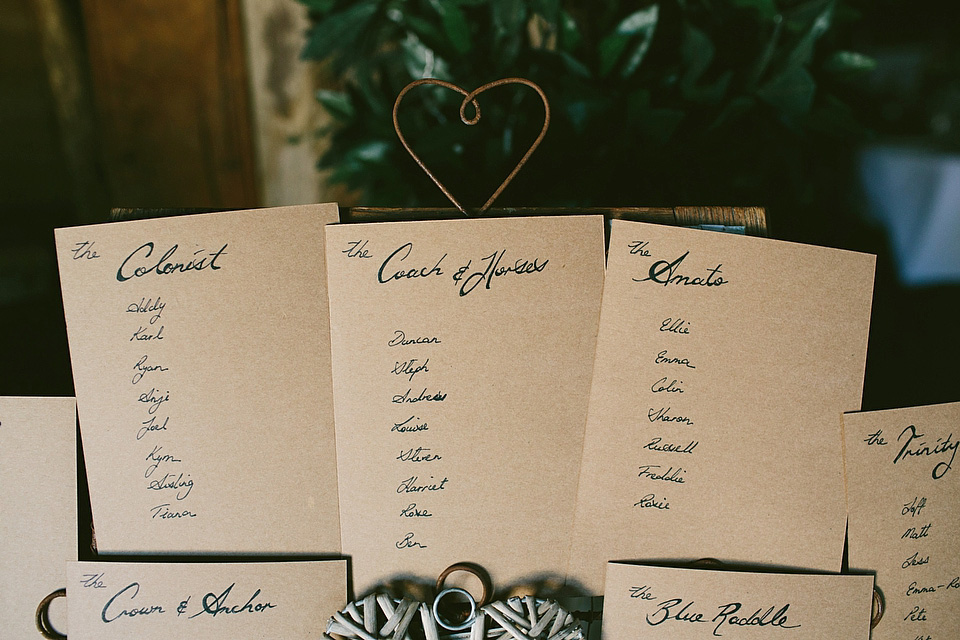 the Colonist
Addy
Karl
Ryan
Anji
Joel
Kym
Aisling
Tiana
the Coach & Horses
Duncan
Steph
Andrew
Louise
Steven
Harriet
Rose
Ben
the Amato
Ellie
Emma
Colin
Sharon
Russell
Freddie
Roxie
the Trinity
Matt
Jess
Pete
the Crown & Anchor
the Blue Raddle